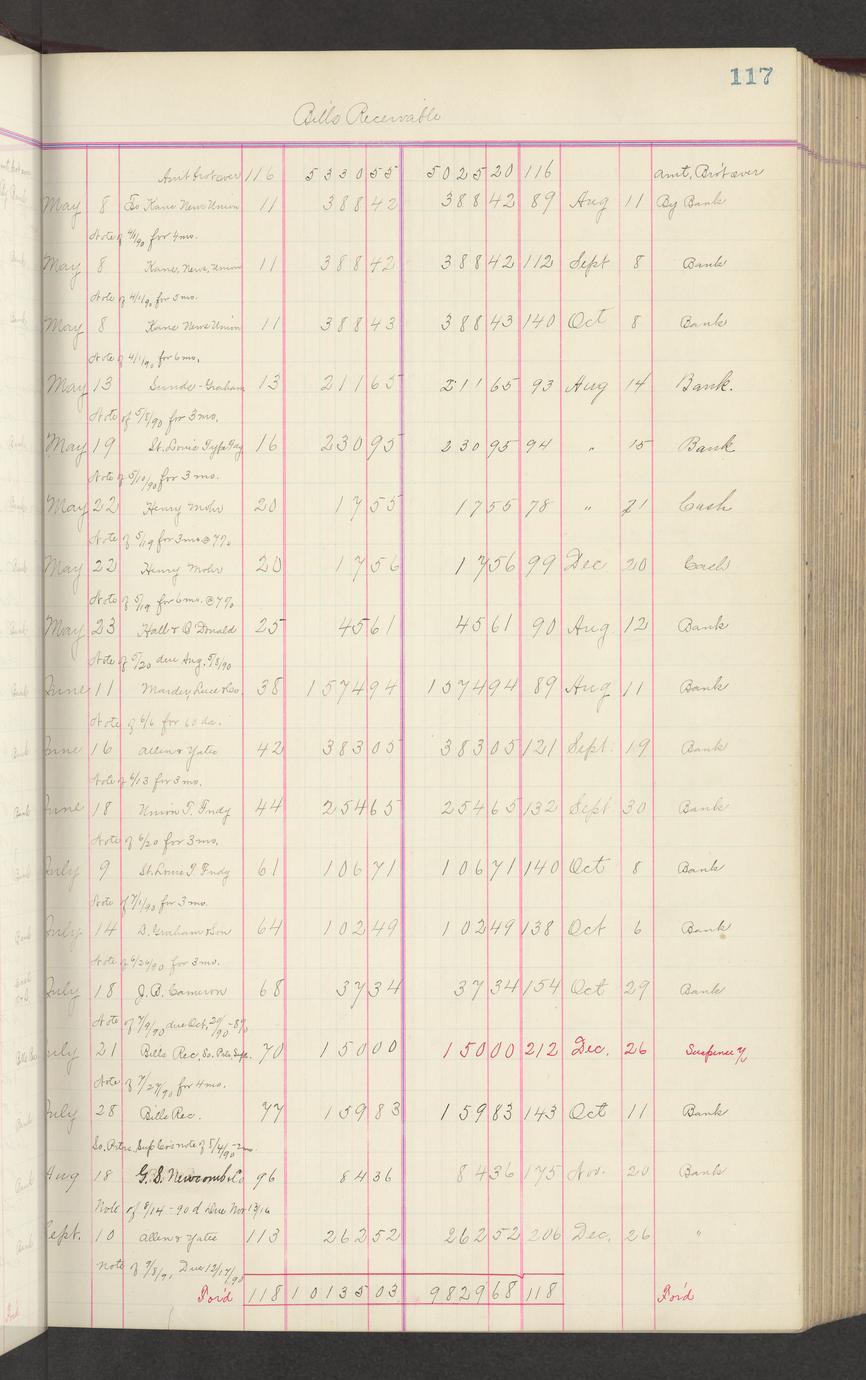 117
Bills Receivable
Amt brot over 116 5330 55 5025 20 116 amt, Bro't over
May 8 To Kane News Union 11 388 42 388 42 89 Aug 11 By Bank
Note of 4/1/90 for 4 mo.
May 8 Kane, News, Union 11 388 42 388 42 112 Sept 8 Bank
Note of 4/1/90 for 5 mo.
May 8 Kane News Union 11 388 43 388 43 140 Oct 8 Bank
Note of 4/1/90 for 6 mo.
May 13 Graham 13 211 65 211 65 93 Aug 14 Bank.
Note of 5/8/90 for 3 mo.
May 19 St. Louis 16 230 95 230 95 94 " 15 Bank
Note of 5/10/90 for 3 mo.
May 22 Henry Mohr 20 17 55 17 55 78 " 21 Cash
Note of 5/19 for 3 mo @ 7%
May 22 Henry Mohr 20 17 56 17 56 99 Dec 20 Cash
Note of 5/19 for 6 mo. @ 7%
May 23 Hall & O'Donald 25 45 61 45 61 90 Aug. 12 Bank
Note of 5/20 due Aug. 5/8/90
June 11 Marder, Luce & Co. 38 1574 94 1574 94 89 Aug 11 Bank
Note of 6/6 for 60 da.
June 16 Allen & Yates 42 383 05 383 05 121 Sept. 19 Bank
Note of 6/13 for 3 mo.
June 18 Union T. Fndy 44 254 65 254 65 132 Sept 30 Bank
Note of 6/20 for 3 mo.
July 9 St. Louis T Fndy 61 106 71 106 71 140 Oct 8 Bank
Note of 7/1/90 for 3 mo.
July 14 D. Graham & Son 64 102 49 102 49 138 Oct 6 Bank
Note of 6/26/90 for 3 mo.
July 18 J. B. Cameron 68 37 34 37 34 154 Oct 29 Bank
Note of 7/9/90 due Oct, 20/90 - 8%
July 21 Bills Rec, So. 70 150 00 150 00 212 Dec. 26 Suspense
Note of 7/27/90 for 4 mo.
July 28 Bills Rec. 77 159 83 159 83 143 Oct 11 Bank
So. Sup Co's note of 8/4/90 - 2 mo.
Aug 18 G. S. Newcomb & Co 96 84 36 84 36 175 Nov. 20 Bank
Note of 8/14 - 90 d Due Nov 13/16
Sept. 10 Allen & Yates 113 262 52 262 52 206 Dec. 26 "
Note of 9/8/9, Due 12/17/90
For'd 118 10135 03 9829 68 118 For'd